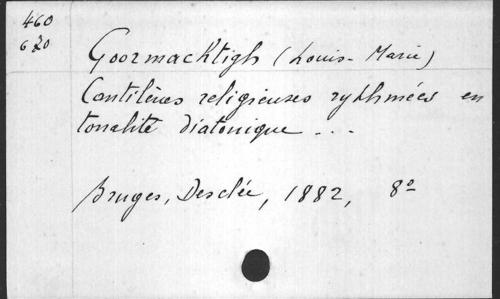 460
620
Goormachtigh (Louis-Marie)
Cantilènes religieuses rythmées en
tonalité diatonique ...
Bruges, Desclée, 1882, 8º